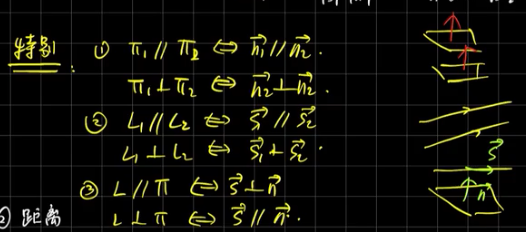 特别: ① π₁ // π₂ ⇔ n₁⃗ // n₂⃗.
π₁ ⊥ π₂ ⇔ n₂⃗ ⊥ n₂⃗.
② L₁ // L₂ ⇔ s₁⃗ // s₂⃗
L₁ ⊥ L₂ ⇔ s₁⃗ ⊥ s₂⃗.
s⃗
③ L // π ⇔ s⃗ ⊥ n⃗
n⃗
L ⊥ π ⇔ s⃗ // n⃗.
距离